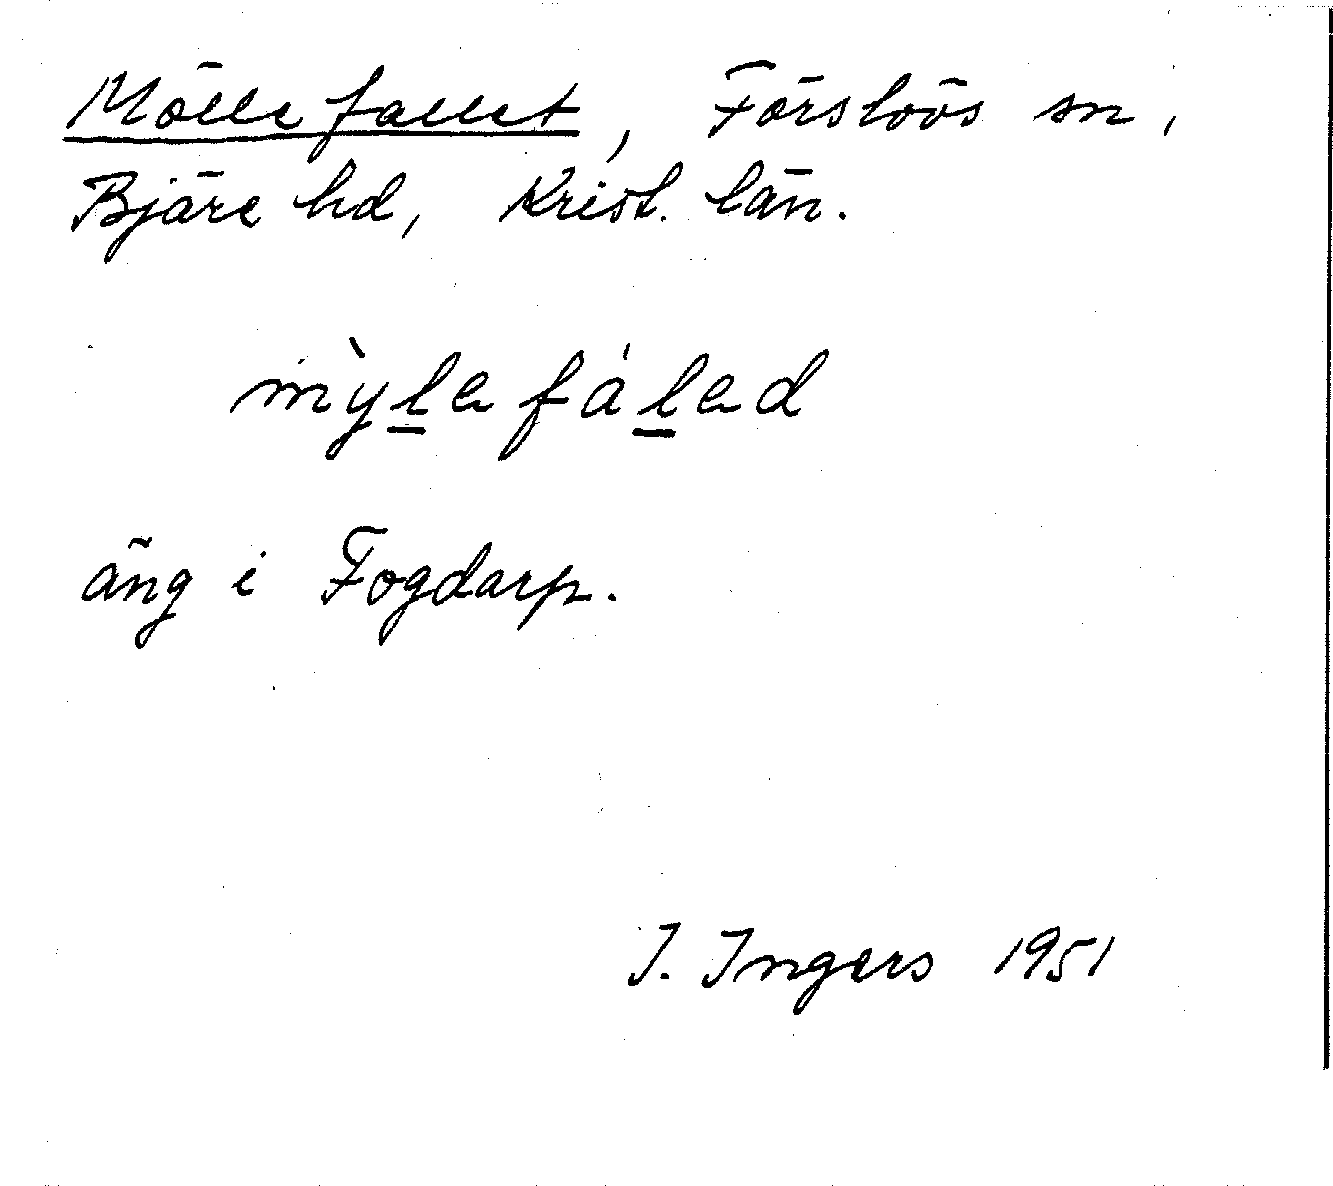 Möllefallet, Förslövs sn,
Bjäre hd, Krist. län.
mỳl̲ɐfál̲ɐd
äng i Fogdarp.
I. Ingers 1951